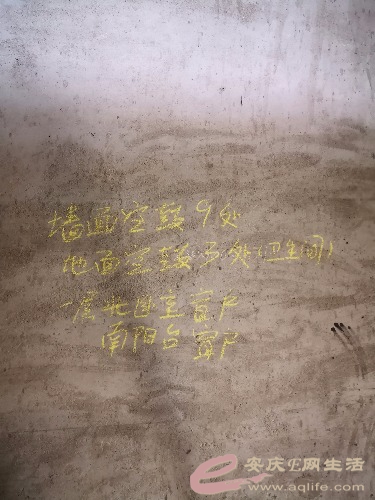 墙面空鼓9处
地面空鼓3处(卫生间)
一层北卧室窗户
南阳台窗户
安庆E网生活
www.aqlife.com